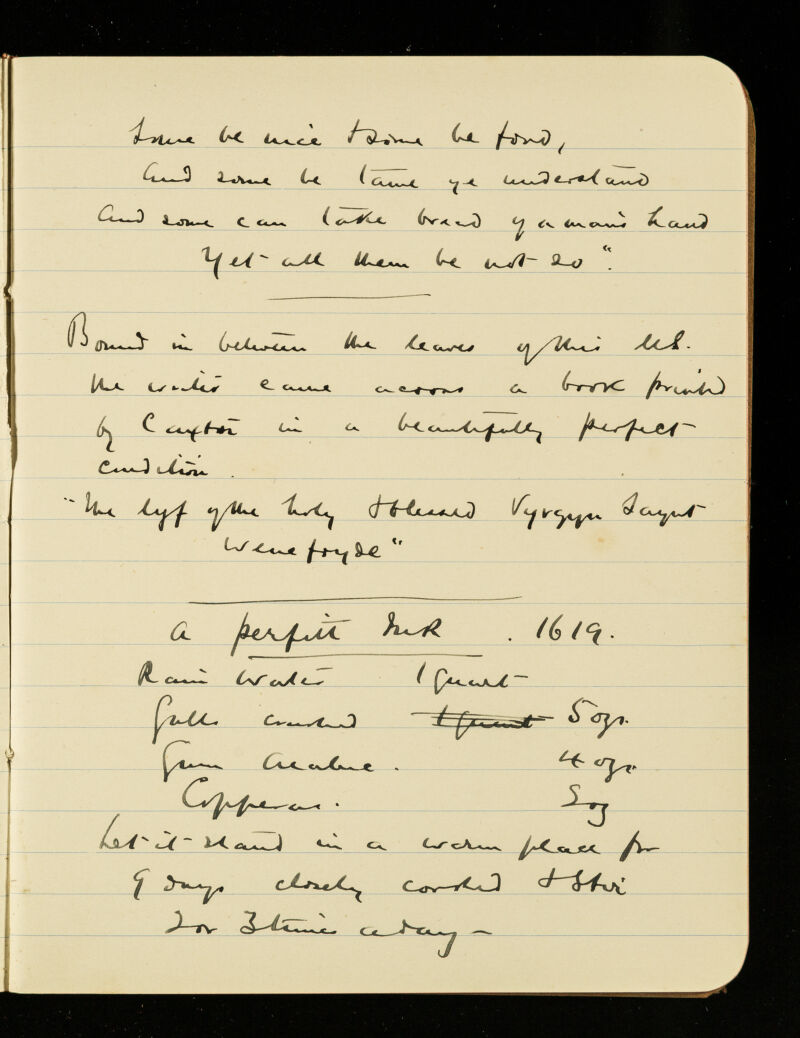 Some be nice & some be fond,
And some be tame ye understand
And some can take bread of a man's hand
Yet all them be not so".
Bound in between the leaves of this MS.
the writer came across a book printed
by Caxton in a beautifully perfect
condition.
"The lyf of the holy & blessed Vyrgyn Saynt
Wenefryde"
A perfitt Ink . 1619.
Rain Water 1 Quart
Galls crushed 1 Quart 5 ozs.
Gum Arabic. 4 ozs.
Copperas. oz
Let it stand in a warm place for
9 days closely covered & Stir
2 or 3 times a day —